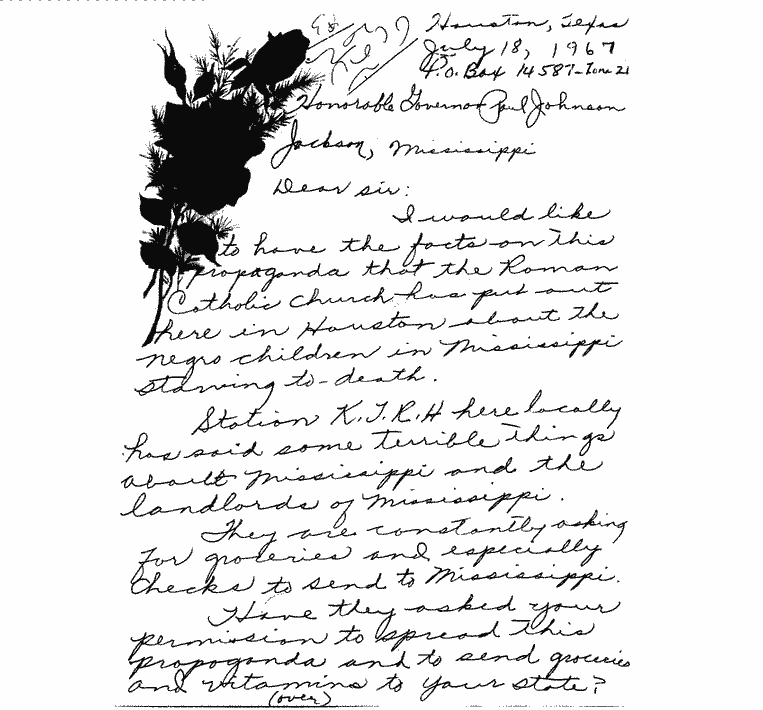 Houston, Texas
July 18, 1967
P.O. Box 14587-Zone 21
Honorable Governor Paul Johnson
Jackson, Mississippi
Dear sir:
I would like
to have the facts on this
propaganda that the Roman
Catholic church has put out
here in Houston about the
negro children in Mississippi
starving to-death.
Station K.T.R.H here locally
has said some terrible things
about Mississippi and the
landlords of Mississippi.
They are constantly asking
for groceries and especially
checks to send to Mississippi.
Have they asked your
permission to spread this
propoganda and to send groceries
and vitamins to your state?
(over)